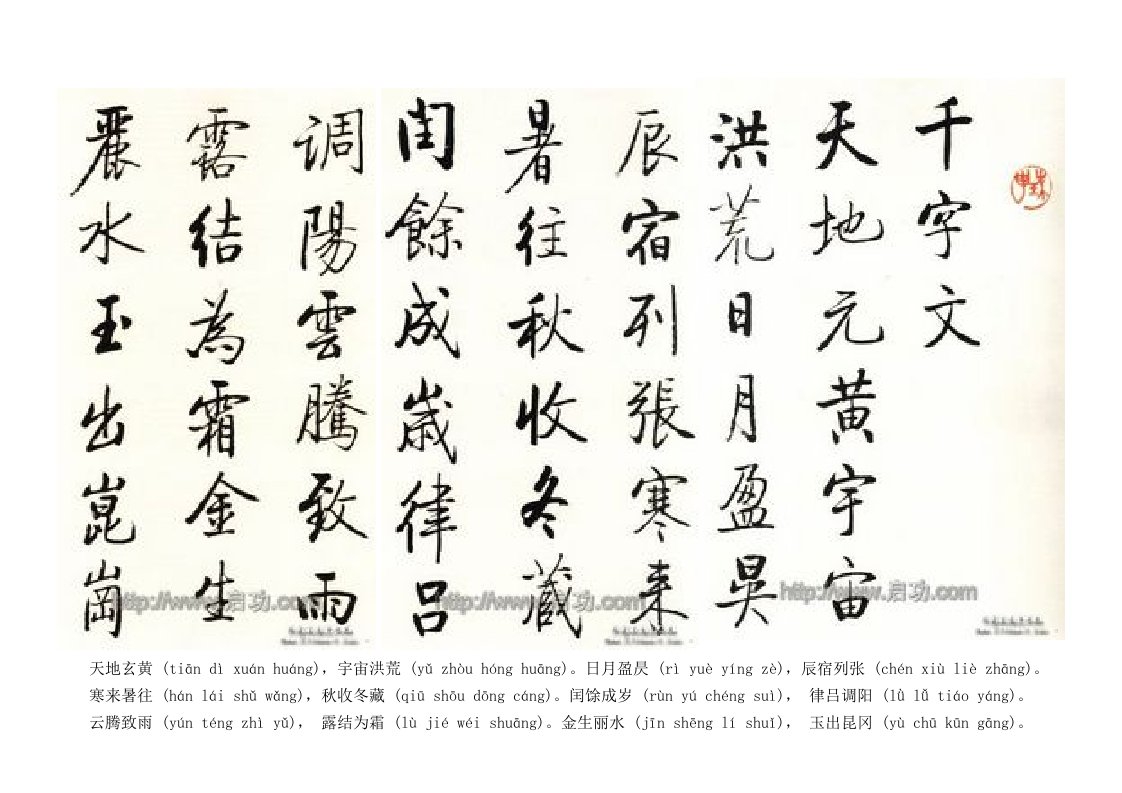 千字文
天地元黄宇宙
洪荒日月盈昃
辰宿列張寒来
暑往秋收冬藏
闰餘成歲律吕
调陽雲騰致雨
露结為霜金生
麗水玉出崑崗
http://www.启功.com
http://www.启功.com
http://www.启功.com
天地玄黄 (tiān dì xuán huáng)，宇宙洪荒 (yǔ zhòu hóng huāng)。日月盈昃 (rì yuè yíng zè)，辰宿列张 (chén xiù liè zhāng)。
寒来暑往 (hán lái shǔ wǎng)，秋收冬藏 (qiū shōu dōng cáng)。闰馀成岁 (rùn yú chéng suì)， 律吕调阳 (lǜ lǚ tiáo yáng)。
云腾致雨 (yún téng zhì yǔ)， 露结为霜 (lù jié wéi shuāng)。金生丽水 (jīn shēng lí shuǐ)， 玉出昆冈 (yù chū kūn gāng)。